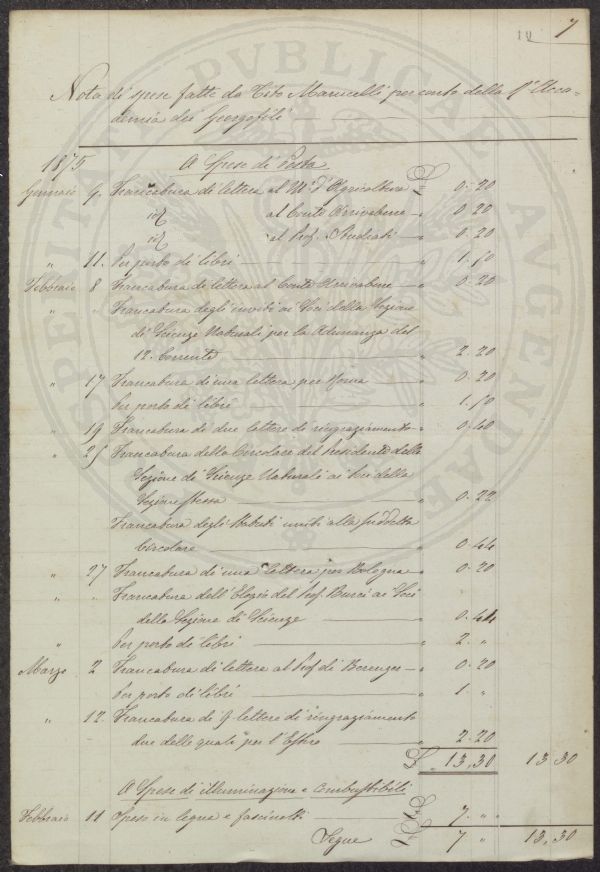 10 7
Nota di spese fatte da Tito Marucelli per conto della R. Acca-
demia dei Georgofili
1875 A Spese di Posta
Gennaio 9. Francatura di lettera al M. d'Agricoltura £ 0.20
id al Conte Arrivabene " 0.20
id al Prof. Studiati " 0.20
" 11. Per porto di libri " 1.50
Febbraio 8 Francatura di lettera al Conte Arrivabene " 0.20
" " Francatura degli inviti ai Soci della Sezione
di Scienze Naturali per la Adunanza del
12. Corrente " 2.20
" 17 Francatura di una lettera per Roma " 0.20
Per porto di libri " 1.50
" 19 Francatura di due lettere di ringraziamento " 0.40
" 25 Francatura della Circolare del Presidente della
Sezione di Scienze Naturali ai Soci della
Sezione stessa " 0.22
Francatura degli inviti alla suddetta
Circolare " 0.44
" 27 Francatura di una lettera per Bologna " 0.20
" " Francatura dell'Elogio del Prof. Burci ai Soci
della Sezione di Scienze " 0.44
" Per porto di libri " 2. "
Marzo 2 Francatura di lettera al Prof. di Berenger " 0.20
Per porto di libri " 1 "
" 12. Francatura di 9 lettere di ringraziamento
due delle quali per l'Estero " 2.20
£ 13.30 13 30
A Spese di illuminazione e Combustibili
Febbraio 11 Spese in legna e fascinotti £ 7. "
Segue £ 7 " 13.30
PROSPERITATI PVBLICAE AVGENDAE